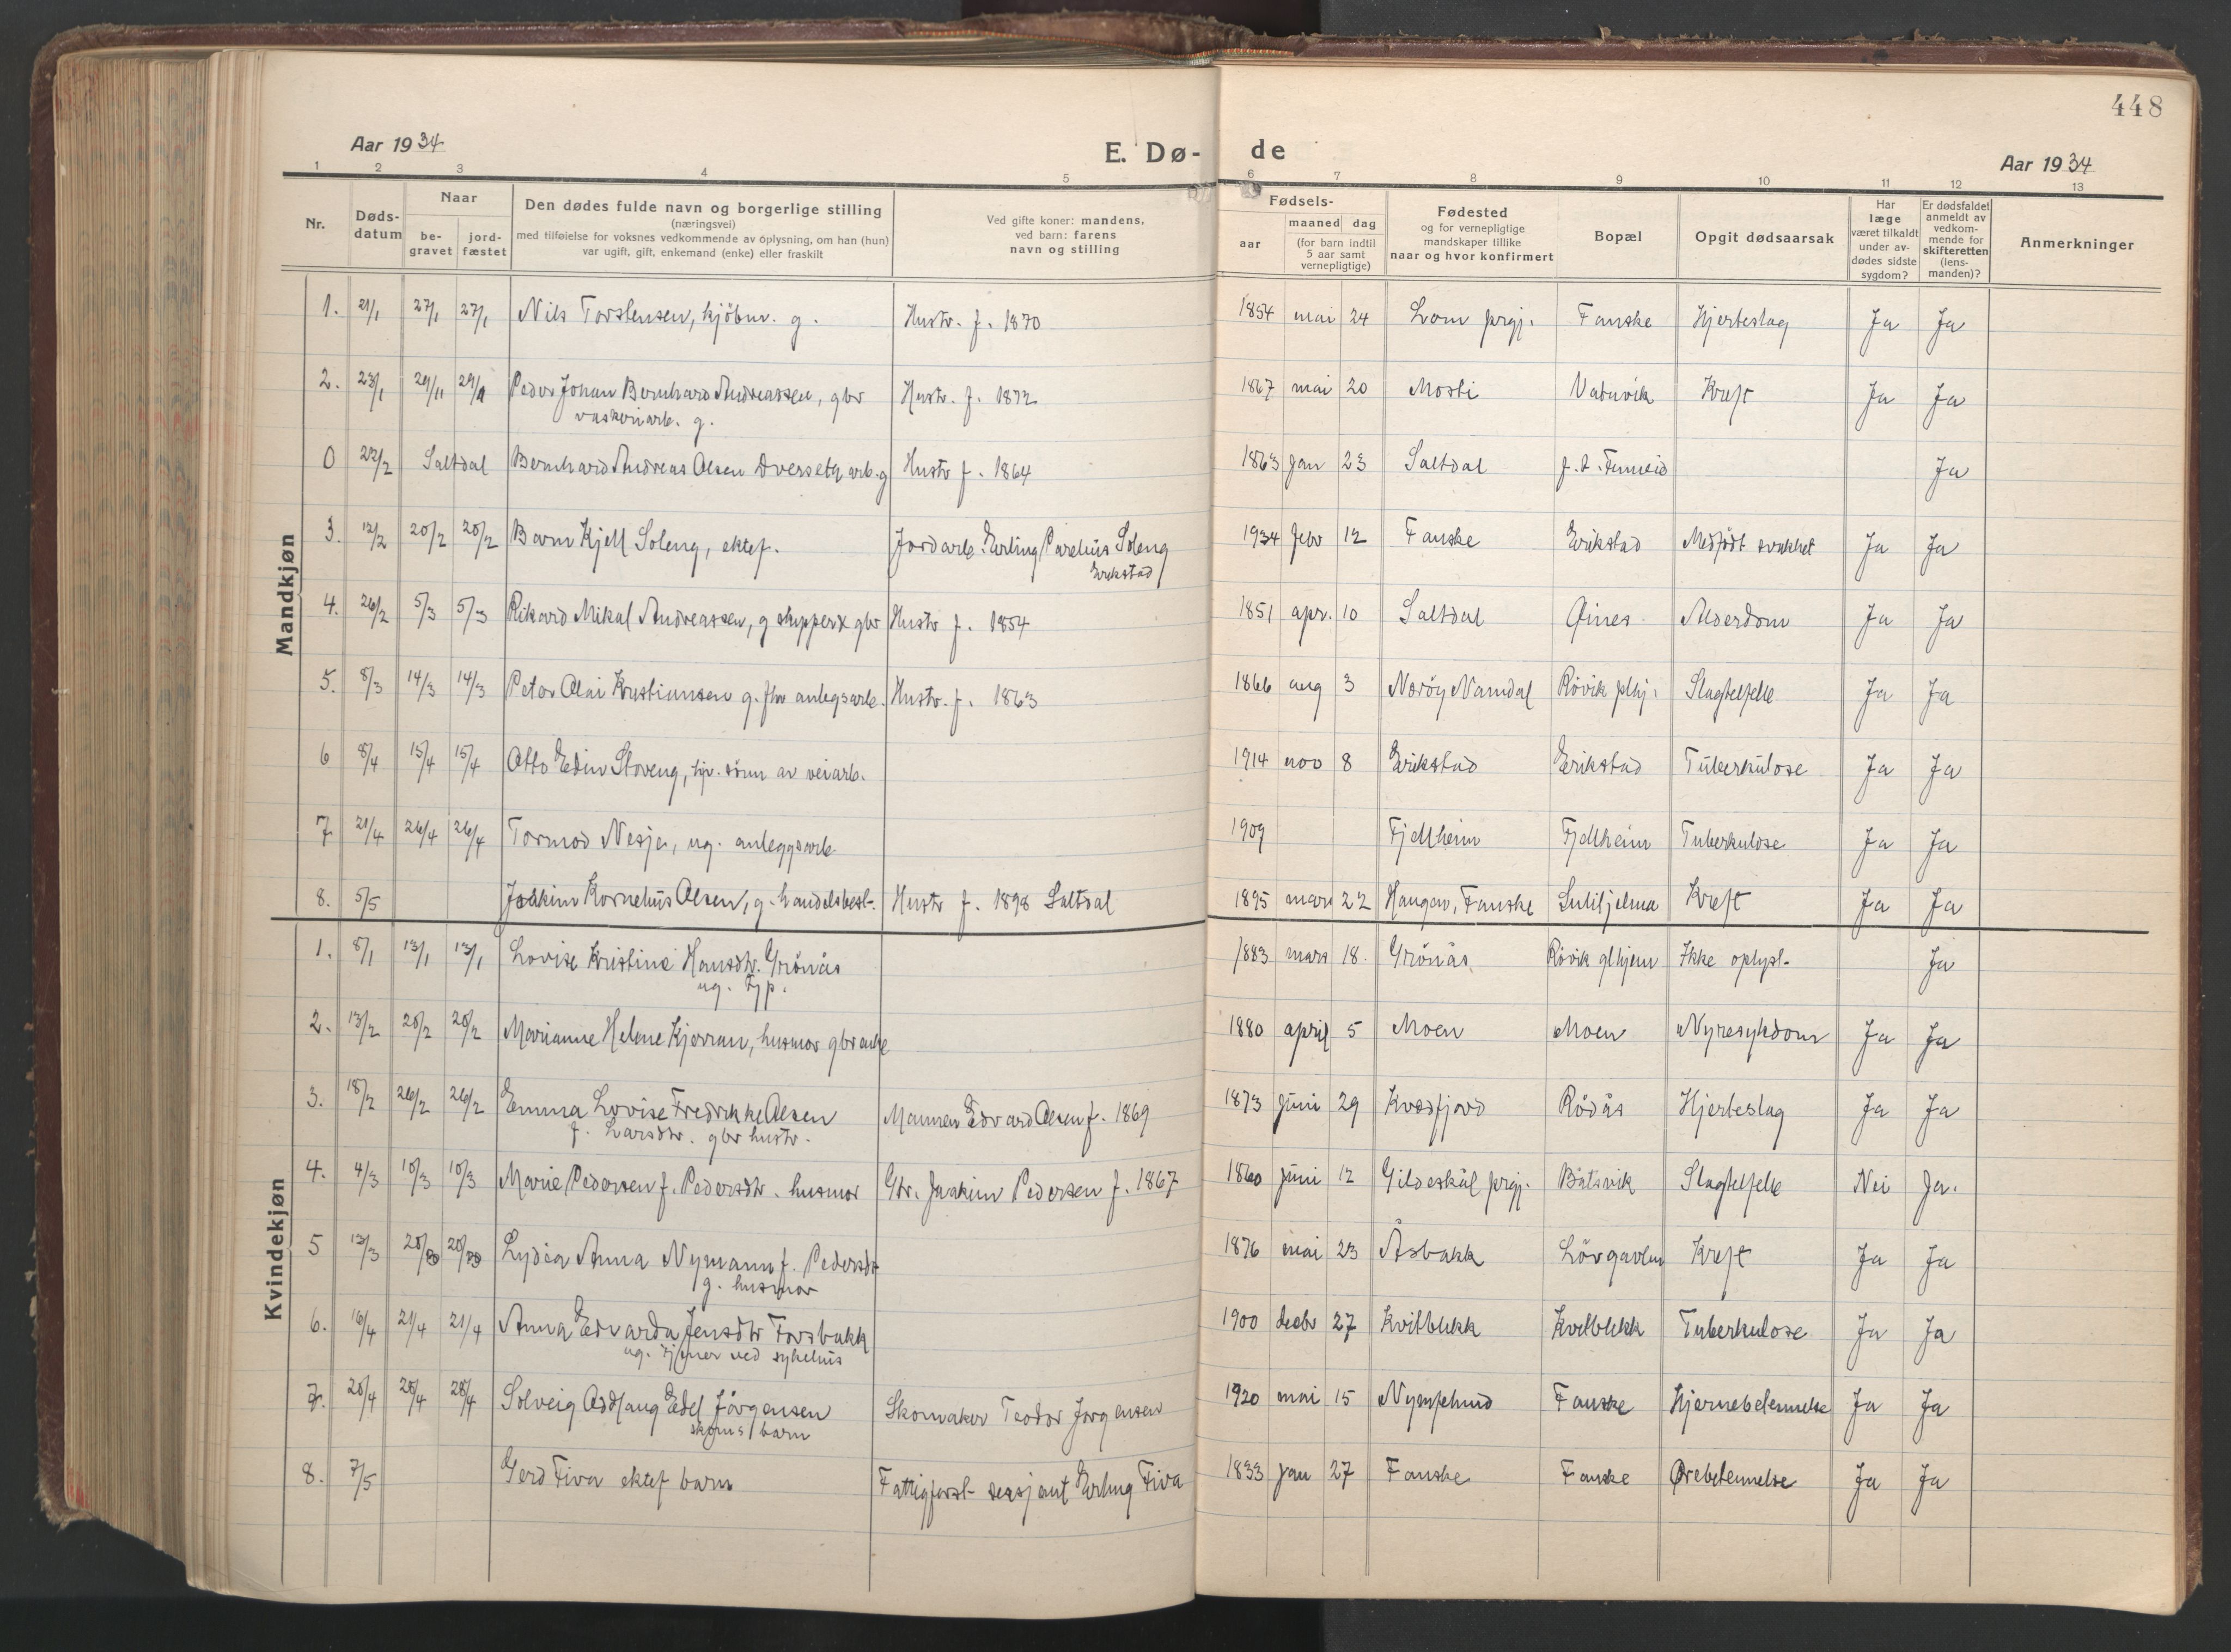 448
Aar 1934
E. Dø- de
Aar 1934
1 2 3 4 5 6 7 8 9 10 11 12 13
Nr.
Døds-datum
Naar
be-gravet
jord-fæstet
Den dødes fulde navn og borgerlige stilling
(næringsvei)
med tilføielse for voksnes vedkommende av oplysning, om han (hun)
var ugift, gift, enkemand (enke) eller fraskilt
Ved gifte koner: mandens,
ved barn: farens
navn og stilling
Fødsels-
aar
maaned dag
(for barn indtil
5 aar samt
vernepligtige)
Fødested
og for vernepligtige
mandskaper tillike
naar og hvor konfirmert
Bopæl
Opgit dødsaarsak
Har
læge
været tilkaldt
under av-
dødes sidste
sygdom?
Er dødsfaldet
anmeldt av
vedkom-
mende for
skifteretten
(lens-
manden)?
Anmerkninger
Mandkjøn
1. 21/1 27/1 27/1 Nils Torstensen, kjöbm. g. Hustr. f. 1870 1854 mai 24 Lom prgj. Fauske Hjerteslag Ja Ja
2. 23/1 29/1 29/1 Peder Johan Bernhard Andreassen, gbr Hustr. f. 1872 1867 mai 20 Mosti Vatnvik Kreft Ja Ja
vaskeriarb. g.
0 22/2 Saltdal Bernhard Andreas Olsen Dverseth arb. g Hustr f. 1864 1863 jan 23 Saltdal f. t. Finneid Ja
3. 12/2 20/2 20/2 Barn Kjell Soleng, ektef. Jordarb. Erling Parelius Soleng 1934 febr 12 Fauske Erikstad Medfödt svakhet Ja Ja
Erikstad
4. 26/2 5/3 5/3 Rikard Mikal Andreassen, g skipper gbr Hustr f. 1854 1851 apr. 10 Saltdal Öines Alderdom Ja Ja
5. 8/3 14/3 14/3 Peter Olai Kristiansen g. fhv anlegsarb. Hustr. f. 1863 1866 aug 3 Neröy Namdal Rövik plhj. Slagtelfelle Ja Ja
6 8/4 15/4 15/4 Otto Edin Stoveng, hjv. sönn av veiarb. 1914 nov 8 Erikstad Erikstad Tuberkulose Ja Ja
7 21/4 26/4 26/4 Tormod Nesje, ug. anleggsarb 1909 Fjellheim Fjellheim Tuberkulose Ja Ja
8. 5/5 Joakim Kornelius Olsen, g. handelsbest. Hustr f. 1898 Saltdal 1895 mars 22 Haugen, Fauske Sulitjelma Kreft Ja Ja
Kvindekjøn
1. 8/1 13/1 13/1 Lovise Kristine Hansdtr. Grönås 1883 mars 18. Grönås Rövik glhjem Ikke oplyst. Ja
ug. Fp.
2. 13/2 20/2 20/2 Marianne Helene Kjerran, husmor gbr enke 1880 april 5 Moen Moen Nyresykdom Ja Ja
3. 18/2 26/2 26/2 Emma Lovise Fredrikke Olsen Mannen Edvard Olsen f. 1869 1873 juni 29 Kvedfjord Rödås Hjerteslag Ja Ja
f. Larsdtr. gbr hustr.
4. 4/3 10/3 10/3 Marie Pedersen f. Pedersdtr. husmor Gbr. Joakim Pedersen f. 1867 1860 juni 12 Gildeskål prgj. Båtsvik Slagtelfelle Nei Ja.
5 13/3 20/3 20/3 Lydia Anna Nymann f. Pedersdtr 1876 mai 23 Åsbakk Lövgavlen Kreft Ja Ja
g. husmor
6. 16/4 21/4 21/4 Anna Edvarda Jensdtr Forsbakk 1900 decbr 27 Kvitblikk Kvitblikk Tuberkulose Ja Ja
ug. tjener ved sykehus
7. 20/4 28/4 28/4 Solveig Oddlaug Edel Jörgensen Skomaker Teodor Jörgensen 1920 mai 15 Nymplund Fauske Hjernebetennelse Ja Ja
skom s barn
8. 7/5 Gerd Fiva ektef barn Fattigforst- sersjant Erling Fiva 1833 jan 27 Fauske Fauske Ørebetennelse Ja Ja